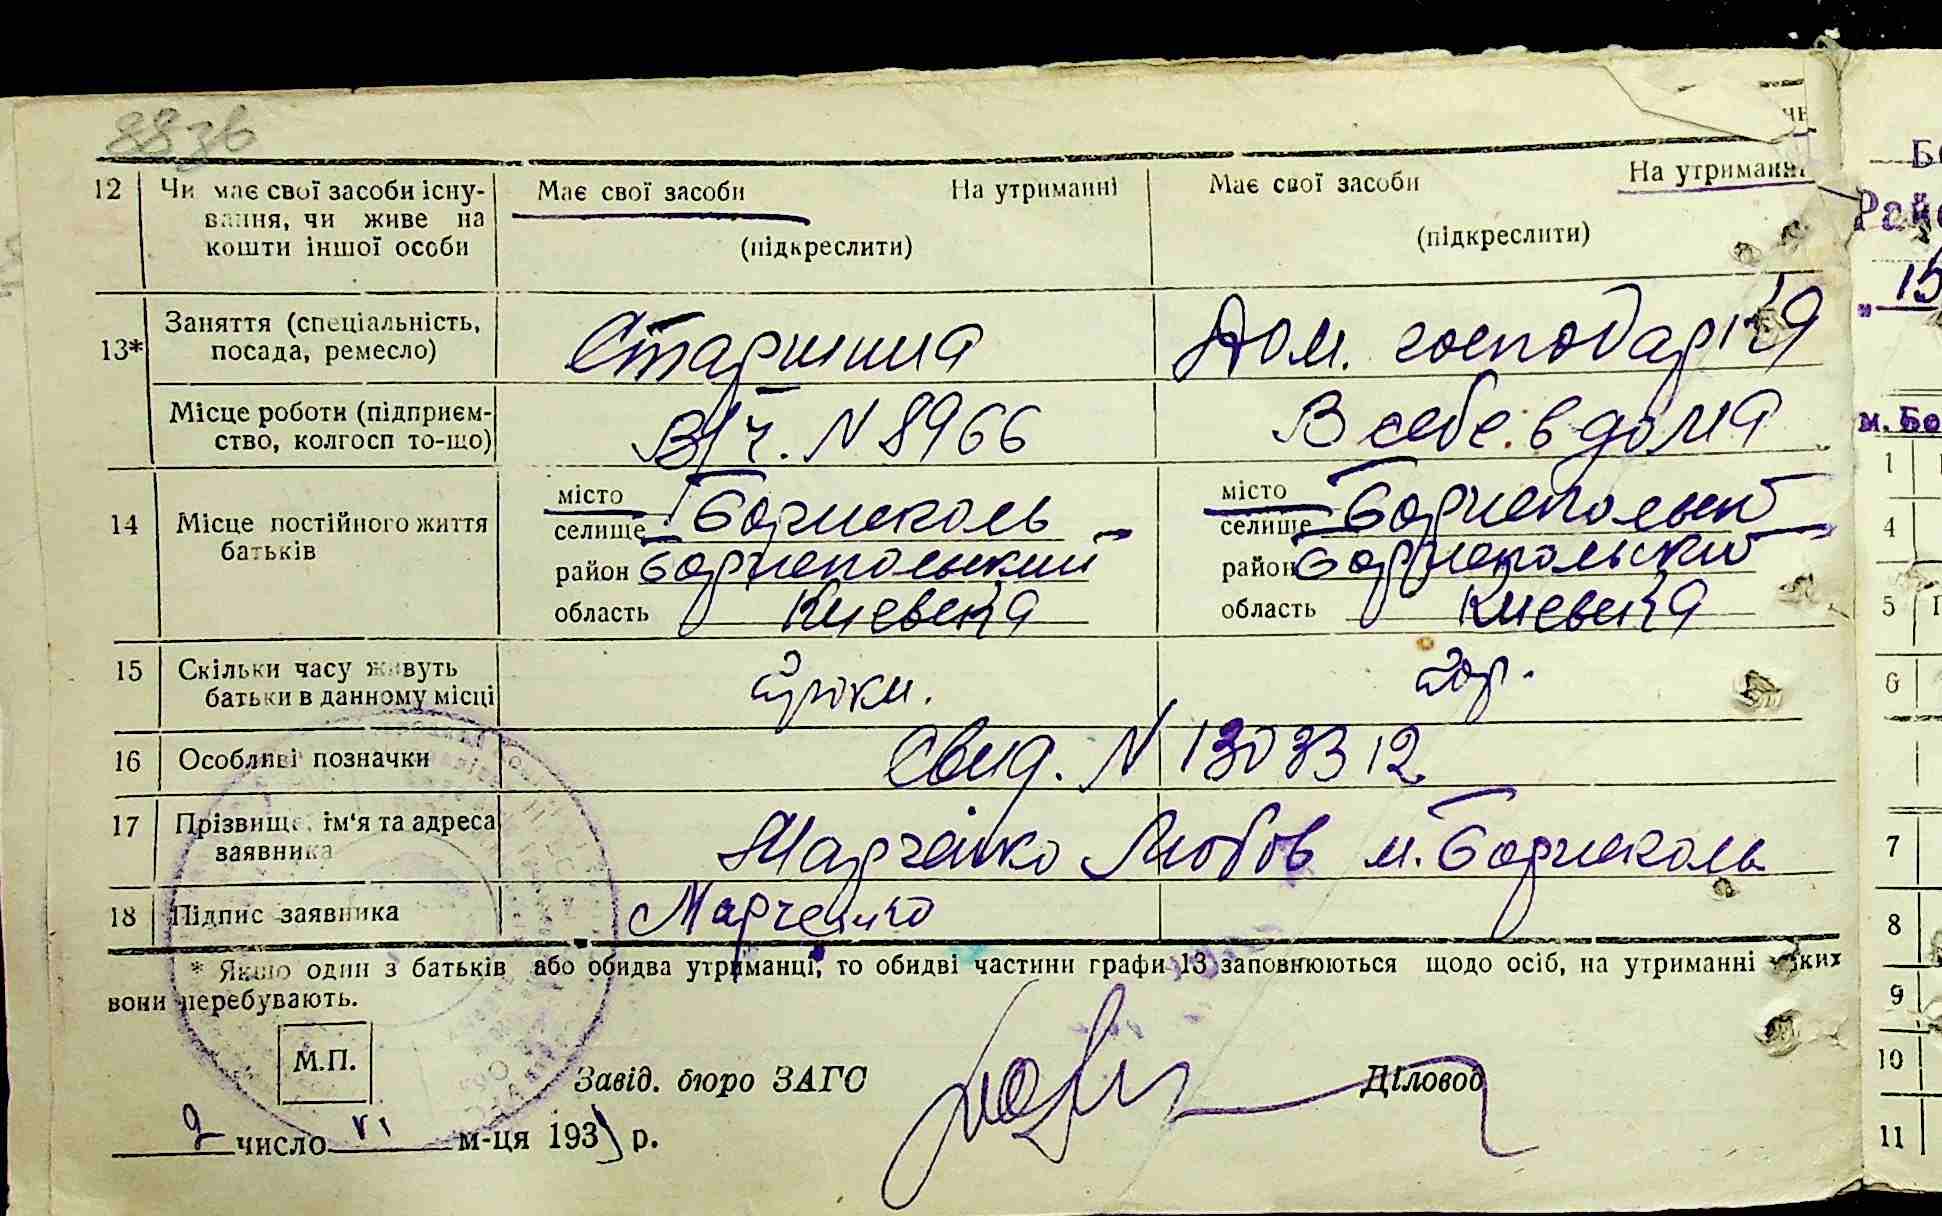 88зв
12 Чи має свої засоби існу- Має свої засоби На утриманні Має свої засоби На утриманні
вання, чи живе на
кошти іншої особи (підкреслити) (підкреслити)
13* Заняття (спеціальність, Старшина Дом. господарка
посада, ремесло)
Місце роботи (підприєм- В/ч. N 8966 В себе в дома
ство, колгосп то-що)
14 Місце постійного життя місто Бориспіль місто Бориспольск
батьків селище селище
район Бориспольский район Бориспольский
область Киевська область Киевська
15 Скільки часу живуть роки.
батьки в данному місці
16 Особливі позначки Свид. N 1303312
17 Прізвище, ім'я та адреса Марченко Любов м. Бориспіль
заявника
18 Підпис заявника Марченко
* Якщо один з батьків або обидва утриманці, то обидві частини графи 13 заповнюються щодо осіб, на утриманні яких
вони перебувають.
М.П.
Завід. бюро ЗАГС Діловод
2 число VI м-ця 193 р.
Бо
Райо
„ 15
м. Бо
1
4
5
6
7
8
9
10
11